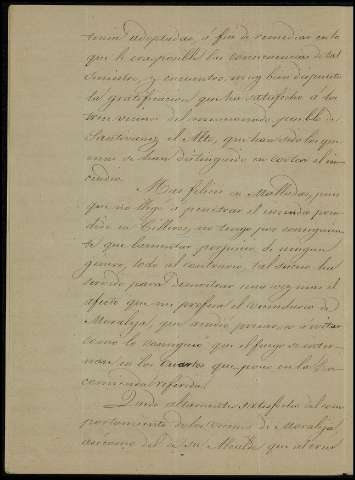 tenian adoptadas, á fin de remediar en lo
que le es posible las consecuencias de tal
siniestro, y encuentro muy bien dispuesta
la gratificacion que ha satisfecho á los
trece vecinos del mencionado pueblo de
Santivañez el Alto, que han sido los que
mas se han distinguido en cortar el in-
cendio.
Mas felices en Malladas, pues
que no llegó á penetrar el incendio pren-
dido en Cilleros, no tengo por consiguien-
te que lamentar perjuicio de ningun
genero, todo al contrario, tal suceso ha
servido para demostrar una vez mas el
afecto que me profesa el vecindario de
Moraleja, que acudió presuroso á evitar
como lo consiguió que el fuego se estor-
nase en los cuartos que poseo en la En-
comienda referida.
Quedo altamente satisfecho del com-
portamiento de los vecinos de Moraleja
asi como del de su Alcalde que al creer